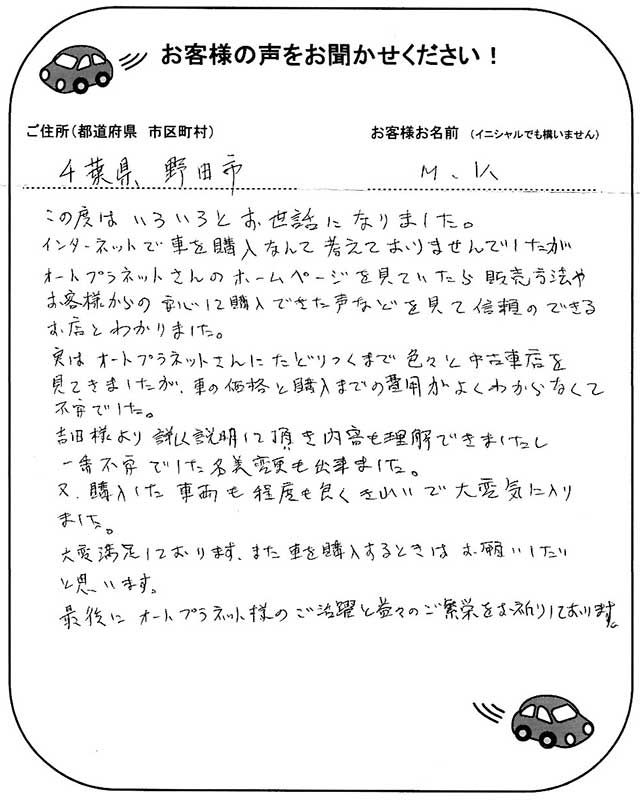 お客様の声をお聞かせください！
ご住所（都道府県 市区町村）
お客様お名前 （イニシャルでも構いません）
千葉県 野田市
M.K
この度は いろいろと お世話に なりました。
インターネットで 車を購入なんて 考えて おりませんでしたが
オートプラネットさんの ホームページを見ていたら 販売方法や
お客様からの 安心して購入できた声などを見て 信頼のできる
お店とわかりました。
実は オートプラネットさんに たどりつくまで 色々と 中古車店を
見てきましたが、車の価格と購入までの費用がよくわからなくて
不安でした。
吉田様より 詳しく説明して頂き内容も理解できましたし
一番不安でした名義変更も出来ました。
又、購入した 車両も 程度も良くきれいで大変気に入り
ました。
大変満足しております、また 車を購入するときは お願いしたい
と思います。
最後に オートプラネット様の ご活躍と益々のご繁栄をお祈りしております。